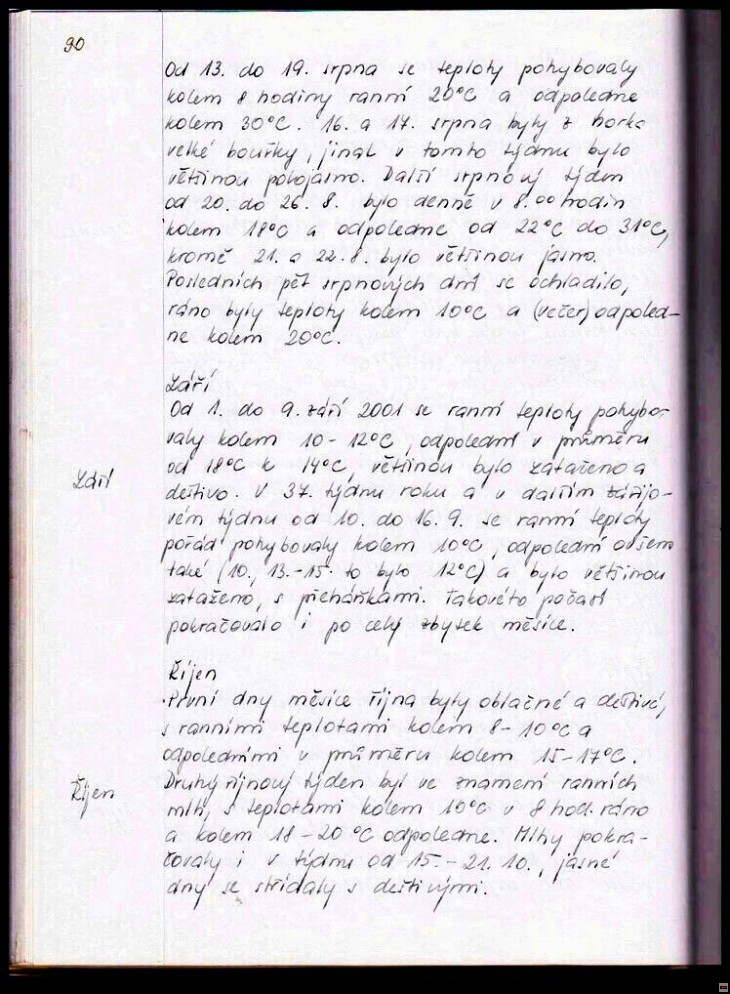 90
Od 13. do 19. srpna se teploty pohybovaly
kolem 8 hodiny ranní 20°C a odpoledne
kolem 30°C. 16. a 17. srpna byly z horka
velké bouřky, jinak v tomto týdnu bylo
většinou polojasno. Další srpnový týden
od 20. do 26. 8. bylo denně v 8.00 hodin
kolem 18°C a odpoledne od 22°C do 31°C,
kromě 21. a 22. 8. bylo většinou jasno.
Posledních pět srpnových dní se ochladilo,
ráno byly teploty kolem 10°C a (večer) odpoled-
ne kolem 20°C.
Září
Od 1. do 9. září 2001 se ranní teploty pohybo-
valy kolem 10-12°C, odpolední v průměru
od 18°C k 14°C, většinou bylo zataženo a
Září
deštivo. V 37. týdnu roku a v dalším zářijo-
vém týdnu od 10. do 16. 9. se ranní teploty
pořád pohybovaly kolem 10°C, odpolední ovšem
také (10., 13.-15. to bylo 12°C) a bylo většinou
zataženo, s přeháňkami. Takovéto počasí
pokračovalo i po celý zbytek měsíce.
Říjen
První dny měsíce října byly oblačné a deštivé,
s ranními teplotami kolem 8-10°C a
odpoledními v průměru kolem 15-17°C.
Druhý říjnový týden byl ve znamení ranních
Říjen
mlh, s teplotami kolem 10°C v 8 hod. ráno
a kolem 18-20°C odpoledne. Mlhy pokra-
čovaly i v týdnu od 15.-21. 10., jasné
dny se střídaly s deštivými.